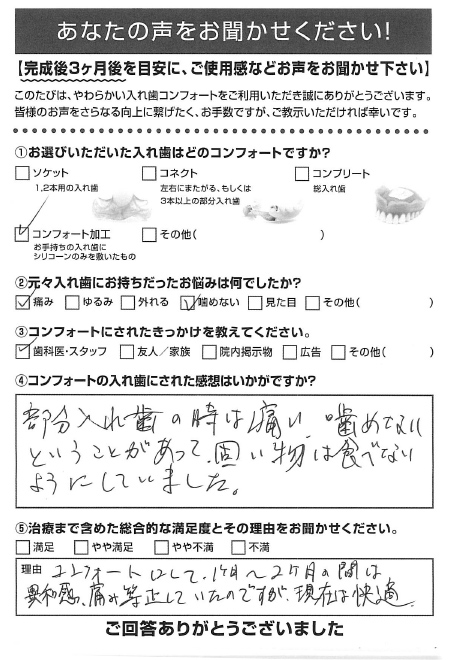 あなたの声をお聞かせください!
【完成後3ヶ月後を目安に、ご使用感などお声をお聞かせ下さい】
このたびは、やわらかい入れ歯コンフォートをご利用いただき誠にありがとうございます。
皆様のお声をさらなる向上に繋げたく、お手数ですが、ご教示いただければ幸いです。
①お選びいただいた入れ歯はどのコンフォートですか?
□ソケット □コネクト □コンプリート
1,2本用の入れ歯 左右にまたがる、もしくは 総入れ歯
3本以上の部分入れ歯
☑コンフォート加工 □その他( )
お手持ちの入れ歯に
シリコーンのみを敷いたもの
②元々入れ歯にお持ちだったお悩みは何でしたか?
☑痛み □ゆるみ □外れる ☑噛めない □見た目 □その他( )
③コンフォートにされたきっかけを教えてください。
☑歯科医・スタッフ □友人／家族 □院内掲示物 □広告 □その他( )
④コンフォートの入れ歯にされた感想はいかがですか?
部分入れ歯の時は痛い、噛めない
ということがあって、固い物は食べない
ようにしていました。
⑤治療まで含めた総合的な満足度とその理由をお聞かせください。
□満足 □やや満足 □やや不満 □不満
理由 コンフォートにして、1ヶ月～2ヶ月の間は
異和感、痛み等正していたのですが、現在は快適。
ご回答ありがとうございました